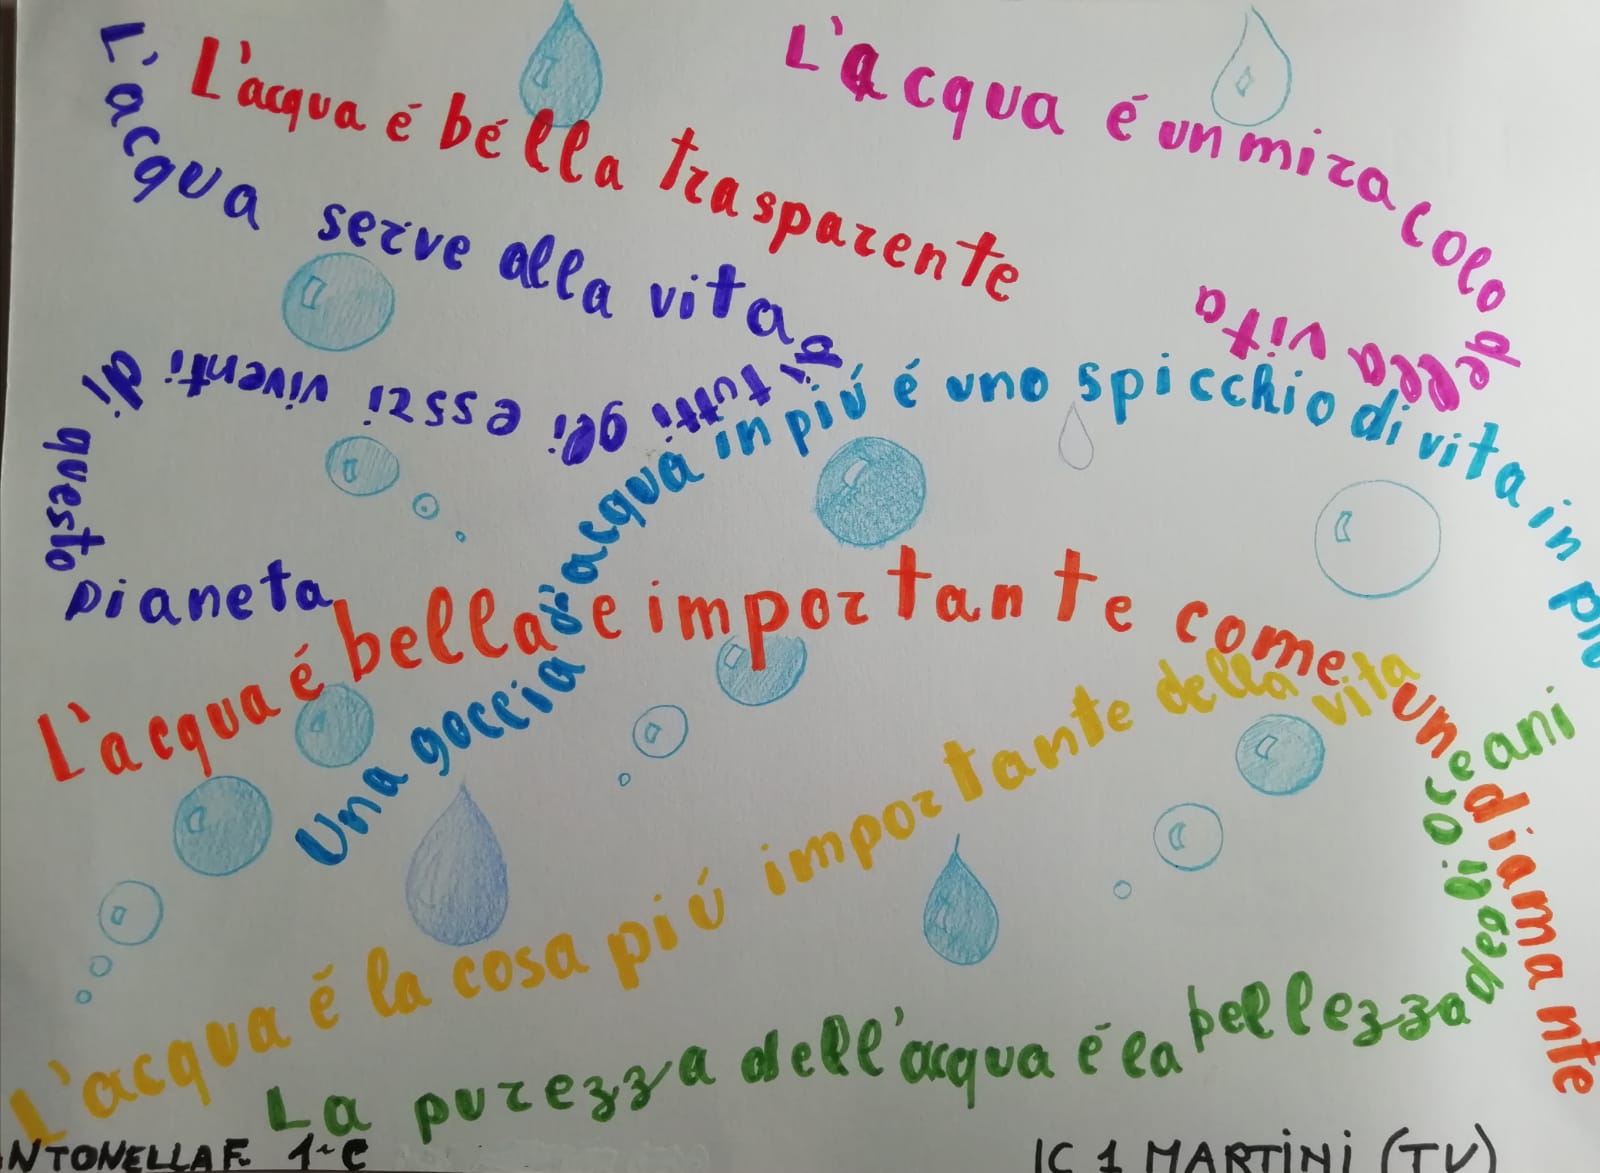 L'acqua é bélla trasparente
L'acqua é un miracolo della vita
L'acqua serve alla vita di tutti gli esseri viventi di questo pianeta
Una goccia d'acqua in piú é uno spicchio di vita in piú
L'acqua é bella e importante come un diamante
L'acqua é la cosa piú importante della vita
La purezza dell'acqua é la bellezza degli oceani
ANTONELLA F. 1^C
IC 1 MARTINI (TV)